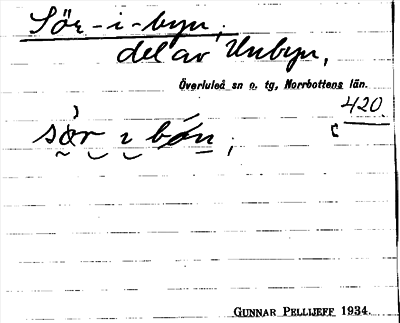 Sör-i-byn,
del av Unbyn,
Överluleå sn o. tg, Norrbottens län.
420
sör ı bön,
GUNNAR PELLIJEFF 1934.